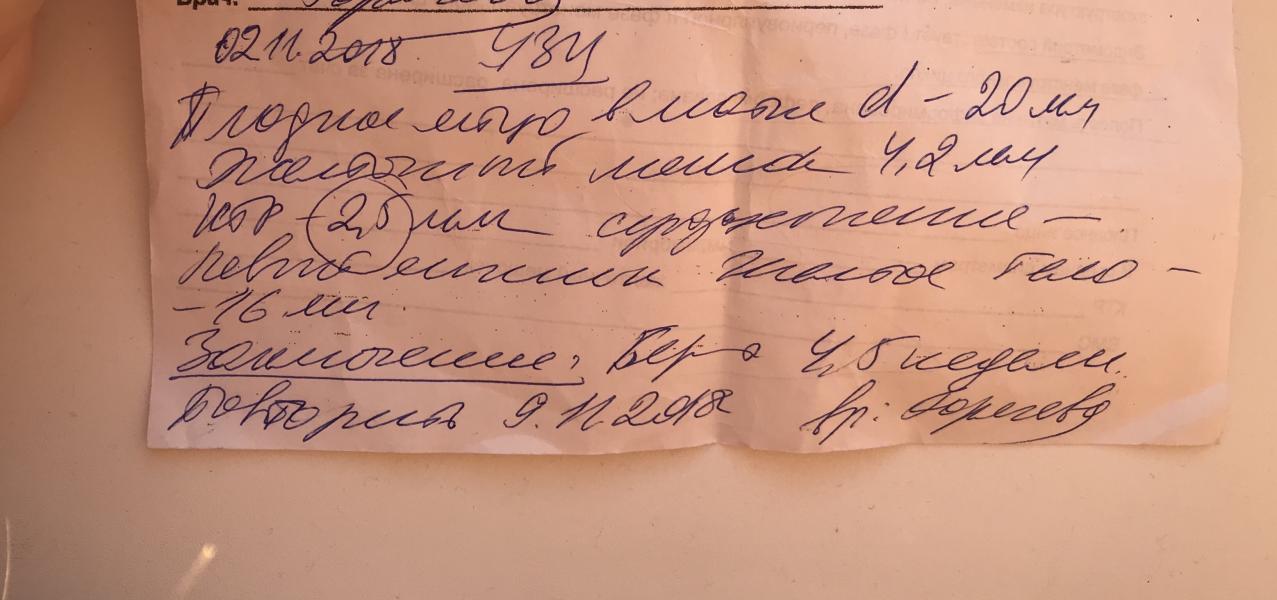 Врач:
02.11.2018 УЗИ
Плодное яйцо в матке d - 20 мм
Желточный мешок 4,2 мм
КТР - 2,5 мм сердцебиение -
желтое тело -
- 16 мм
Заключение: Бер-ь 4,5 недели.
Повторить 9.11.2018 вр: